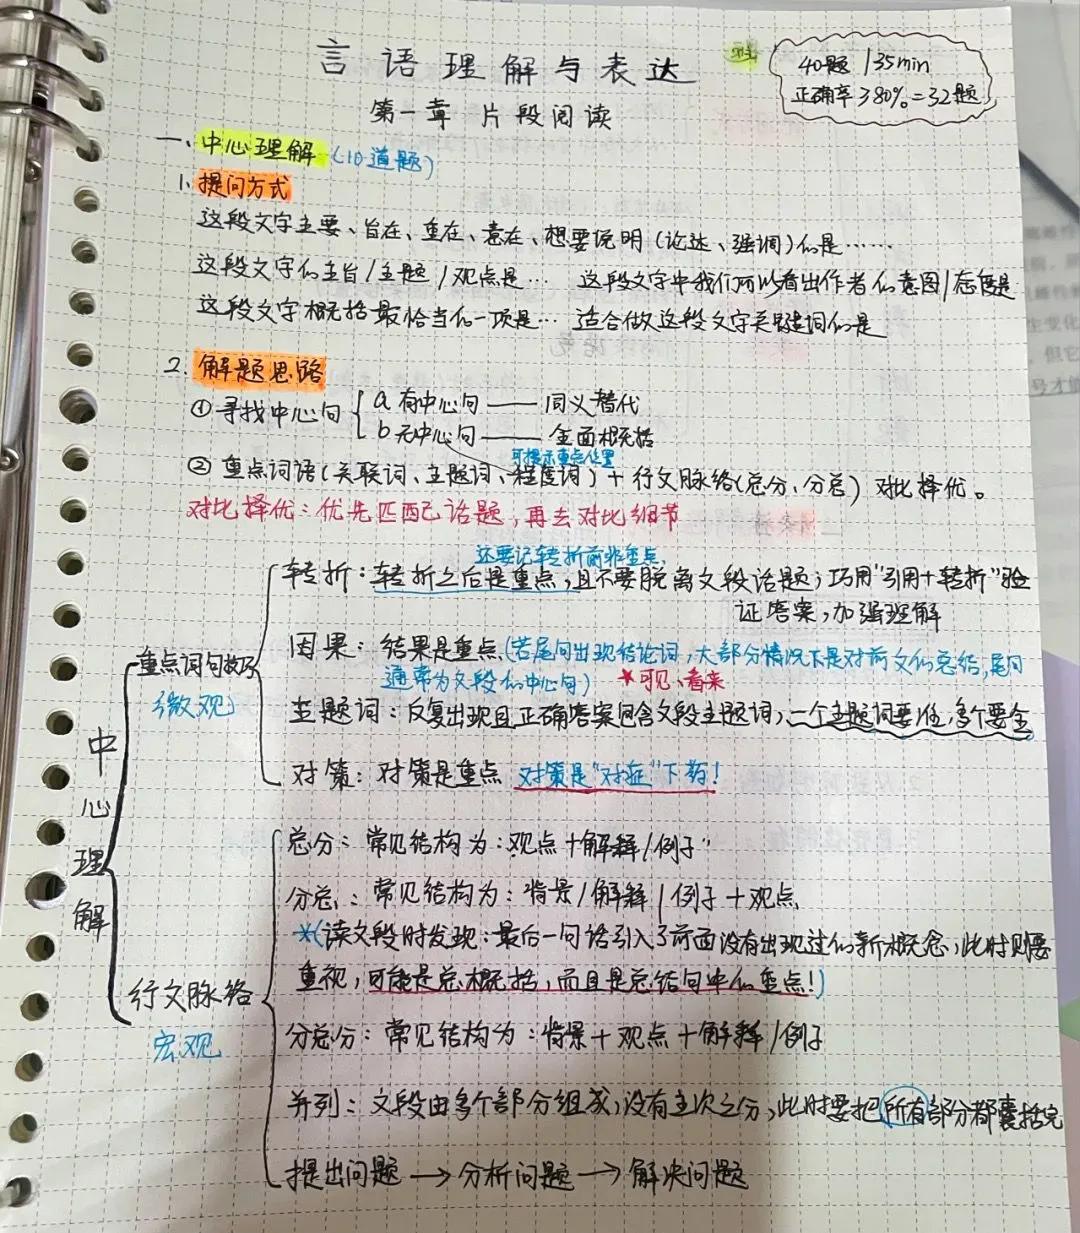 言语理解与表达
40题 135min
正确率≥80%=32题
第一章 片段阅读
一、中心理解(10道题)
1. 提问方式
这段文字主要、旨在、重在、意在、想要说明(论述、强调)的是……
这段文字的主旨/主题/观点是… 这段文字中我们可以看出作者的意图/态度是
这段文字概括最恰当的一项是… 适合做这段文字关键词的是
2. 解题思路
①寻找中心句
a 有中心句——同义替代
b 无中心句——全面概括
可提示重点位置
②重点词语(关联词、主题词、程度词)+行文脉络(总分、分总)对比择优。
对比择优:优先匹配话题,再去对比细节
还要记转折前非重点,
转折:转折之后是重点,且不要脱离文段话题;巧用"引用+转折"验
证答案,加强理解
因果:结果是重点(若尾句出现结论词,大部分情况下是对前文的总结,尾句
通常为文段的中心句) ★可见、看来
重点词句技巧
微观
主题词:反复出现且正确答案包含文段主题词,一个主题词要准,多个要全
对策:对策是重点 对策是"对症"下药!
中心理解
总分:常见结构为:观点+解释/例子
分总:常见结构为:背景/解释/例子+观点
*(读文段时发现:最后一句话引入了前面没有出现过的新概念,此时则要
重视,可能是总概括,而且是总结句中的重点!)
行文脉络
宏观
分总分:常见结构为:背景+观点+解释/例子
并列:文段由多个部分组成,没有主次之分,此时要把所有部分都囊括完
提出问题→分析问题→解决问题